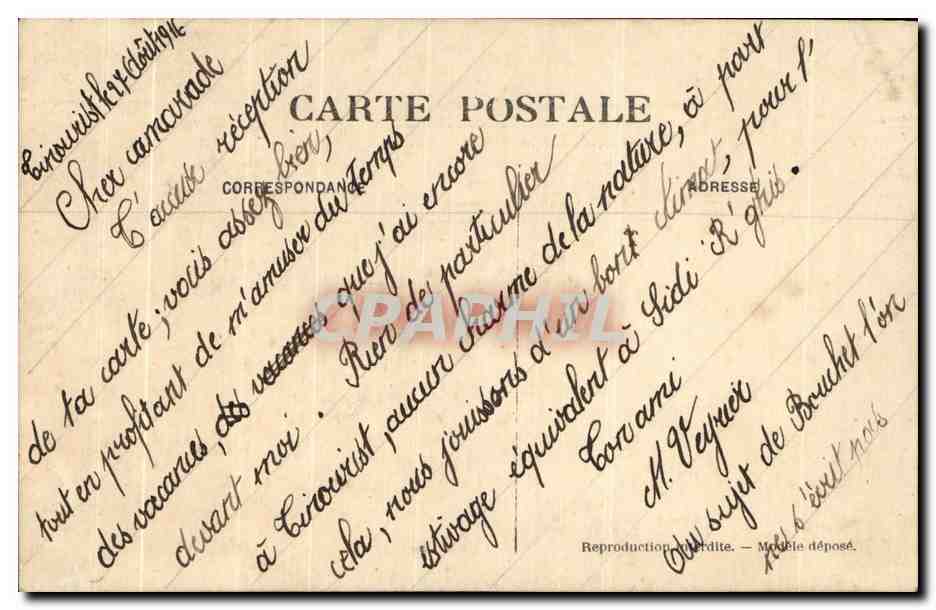 Tirourist le 27 Août 1916
Cher camarade
T'accuse réception
de ta carte ; vous assez bien,
tout en profitant de m'amuser du temps
des vacances, des vacances que j'ai encore
devant moi. Rien de particulier
à Tirourist, aucun charme de la nature, à part
cela, nous jouissons d'un bont climat, pour l'
estivage équivalent à Sidi R'ghis.
Ton ami
M. Veyrier
Au sujet de Bouchet l'on
ne s'écrit pas
CARTE POSTALE
CORRESPONDANCE
ADRESSE
CPAPHIL
Reproduction interdite. — Modèle déposé.